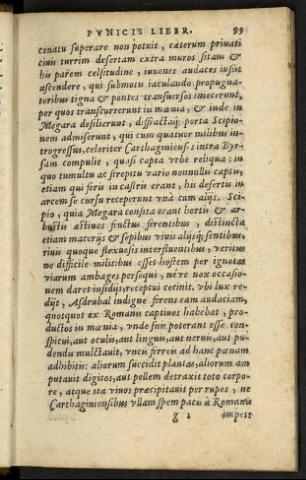 PVNICIS LIBER. 99
conatu superare non potuit, cæterum priuati
ciuis turrim desertam extra muros sitam &
his parem celsitudine, iuuenes audaces iussit
ascendere, qui submotis iaculando propugna-
toribus tigna & pontes transuersos iniecerunt,
per quos transcurrerunt in mœnia, & inde in
Megara desilierunt, diffractaq; porta Scipio-
nem admiserunt, qui cum quatuor milibus in-
trogressus, celeriter Carthaginienses intra Byr-
sam compulit, quasi capta vrbe reliqua: in
quo tumultu ac strepitu vario nonnullis captis,
etiam qui foris in castris erant, his desertis in
arcem se cursu receperunt vnà cum alijs. Sci-
pio, quia Megara consita erant hortis & ar-
bustis æstiuos fructus ferentibus, distincta
etiam macerijs & sepibus viuis alijsq; sentibus,
riuis quoque flexuosis interfluentibus, veritus
ne difficile militibus esset hostem per ignotas
viarum ambages persequi, néve nox occasio-
nem daret insidijs, receptui cecinit. vbi lux re-
dijt, Asdrubal indigne ferens eam audaciam,
quotquot ex Romanis captiuos habebat, pro-
ductos in mœnia, vnde suis poterant esse con-
spicui, aut oculis, aut linguis, aut neruis, aut pu-
dendis mulctauit, vncis ferreis ad hanc pœnam
adhibitis: aliorum succidit plantas, aliorum am
putauit digitos, aut pellem detraxit toto corpo-
re, atque ita viuos præcipitauit per rupes, ne
Carthaginensibus vllam spem pacis à Romanis
g 2 impetr